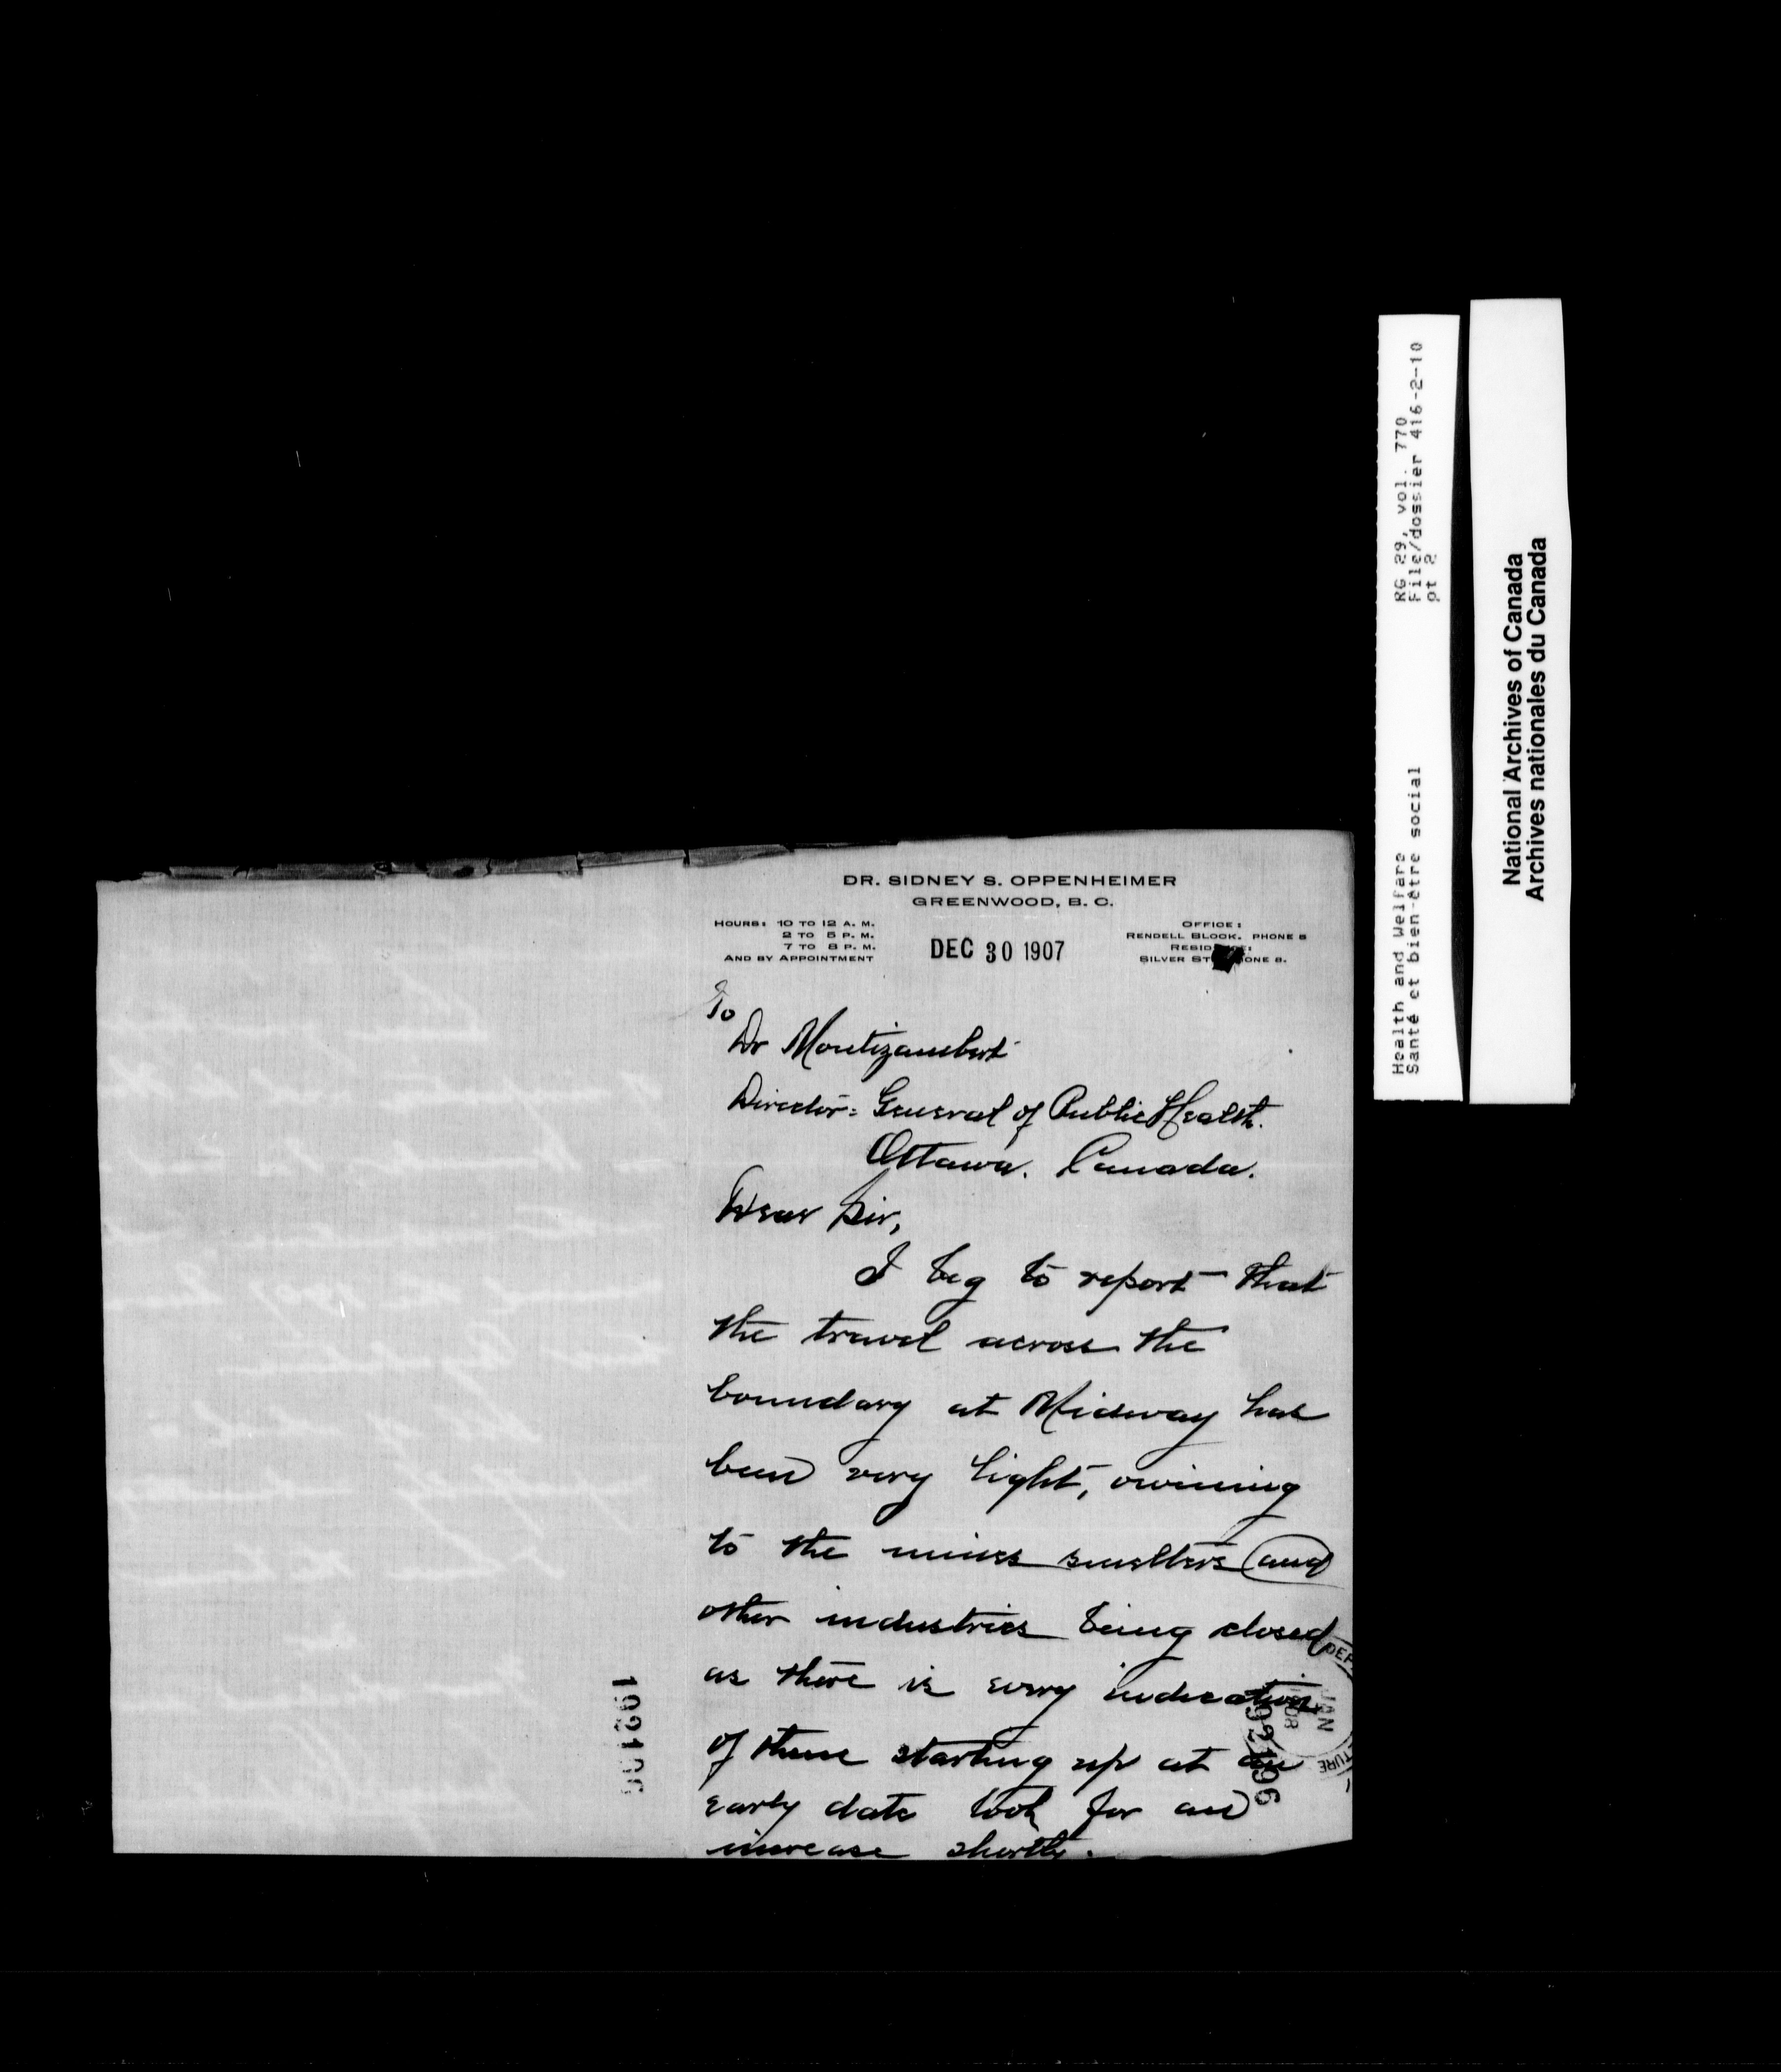 DR. SIDNEY S. OPPENHEIMER
GREENWOOD, B. C.
HOURS: 10 TO 12 A. M.
2 TO 5 P. M.
7 TO 8 P. M.
AND BY APPOINTMENT
DEC 30 1907
OFFICE:
RENDELL BLOCK. PHONE 8
RESID
SILVER ST ONE 8.
To
Dr Montizambert
Director = General of Public Health.
Ottawa. Canada.
Dear Sir,
I beg to report that
the travel across the
boundary at Midway has
been very light, owining
to the mines smelters and
other industries being closed
as there is every indication
of these starting up at an
early date look for an
increase shortly.
DEP
JAN
1908
TURE
192196
192196
RG 29, vol. 770
File/dossier 416-2-10
pt 2
Health and Welfare
Santé et bien-être social
National Archives of Canada
Archives nationales du Canada